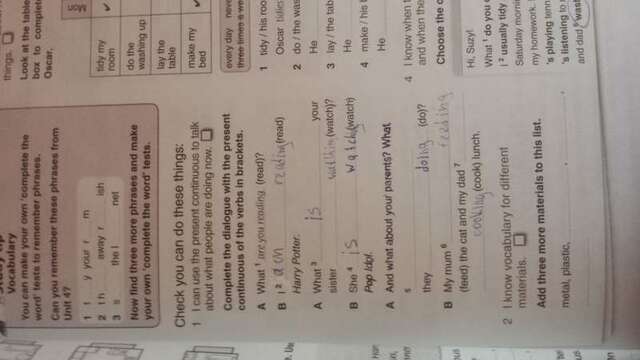 Vocabulary
You can make your own 'complete the
word' tests to remember phrases.
Can you remember these phrases from
Unit 4?
1 t y your r m
2 th away r ish
3 s the l net
Now find three more phrases and make
your own 'complete the word' tests.
Check you can do these things:
1 I can use the present continuous to talk
about what people are doing now.
Complete the dialogue with the present
continuous of the verbs in brackets.
A What ¹ are you reading (read)?
B I ² am reading (read)
Harry Potter.
A What ³ is your
sister (watch)?
B She ⁴ is watching (watch)
Pop Idol.
A And what about your parents? What
⁵
they doing (do)?
B My mum ⁶ feeding
(feed) the cat and my dad ⁷
cooking (cook) lunch.
2 I know vocabulary for different
materials.
Add three more materials to this list.
metal, plastic,
things.
Look at the table
box to complete
Oscar.
Mon
tidy my
room
do the
washing up
lay the
table
make my
bed
every day never
three times a week
1 tidy / his room
Oscar tidies
2 do / the wash
He
3 lay / the tab
He
4 make / his b
He
4 I know when t
and when the
Choose the c
Hi, Suzy!
What ¹ do you d
I ² usually tidy
Saturday morni
my homework.
's playing tenn
's listening to
and dad